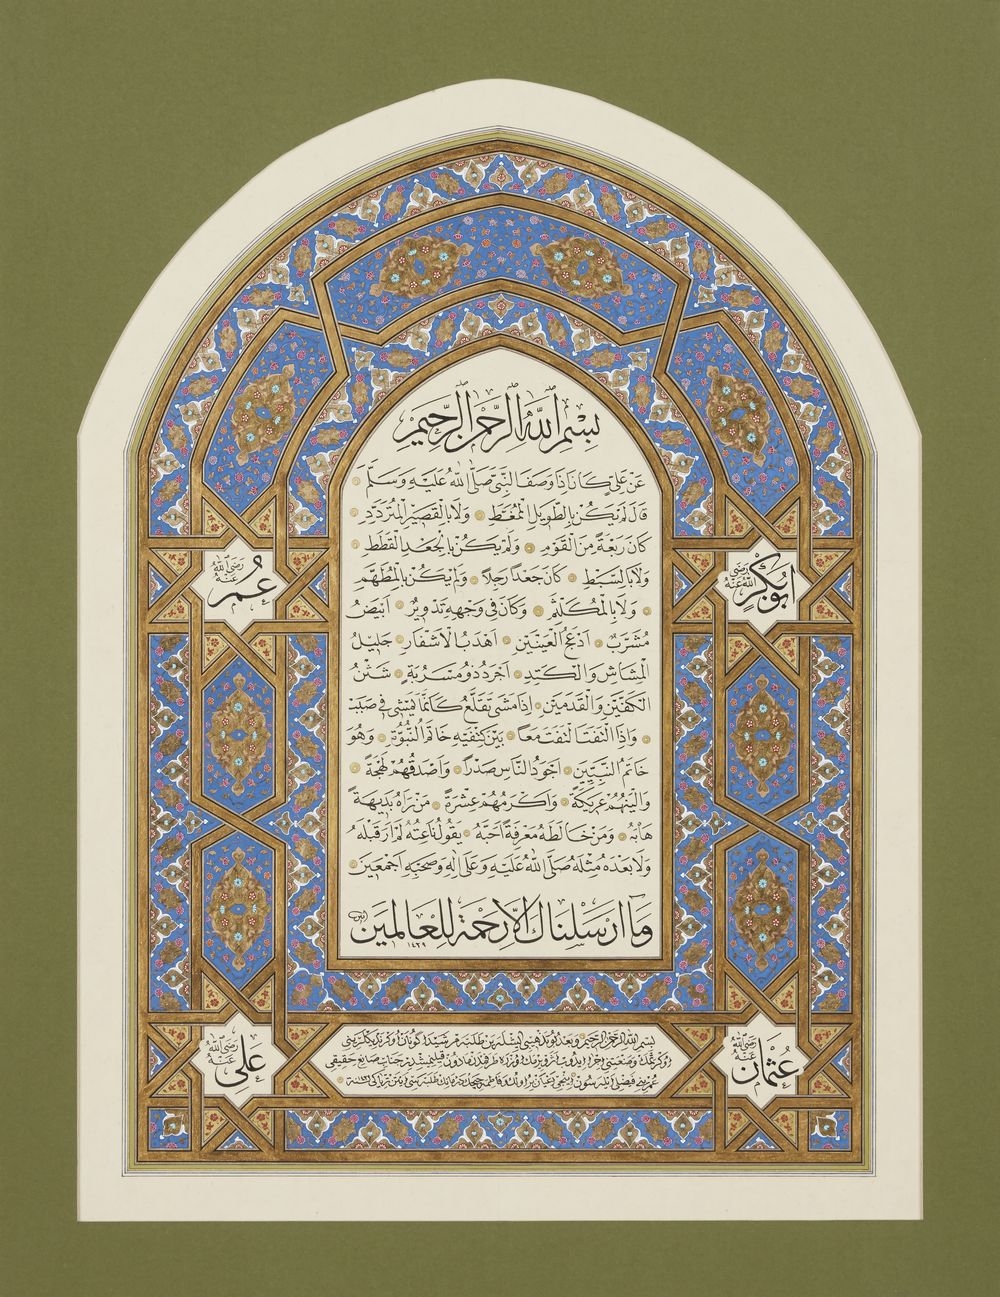 بِسْمِ اللّٰهِ الرَّحْمٰنِ الرَّحِيمِ
عَنْ عَلِيٍّ كَانَ اِذَا وَصَفَ النَّبِيَّ صَلَّى اللّٰهُ عَلَيْهِ وَسَلَّمَ
قَالَ لَمْ يَكُنْ بِالطَّوِيلِ الْمُمَغَّطِ وَلَا بِالْقَصِيرِ الْمُتَرَدِّدِ
كَانَ رَبْعَةً مِنَ الْقَوْمِ وَلَمْ يَكُنْ بِالْجَعْدِ الْقَطَطِ
وَلَا بِالسَّبِطِ كَانَ جَعْدًا رَجِلًا وَلَمْ يَكُنْ بِالْمُطَهَّمِ
وَلَا بِالْمُكَلْثَمِ وَكَانَ فِي وَجْهِهِ تَدْوِيرٌ اَبْيَضُ
مُشْرَبٌ اَدْعَجُ الْعَيْنَيْنِ اَهْدَبُ الْاَشْفَارِ جَلِيلُ
الْمُشَاشِ وَالْكَتَدِ اَجْرَدُ ذُو مَسْرُبَةٍ شَثْنُ
الْكَفَّيْنِ وَالْقَدَمَيْنِ اِذَا مَشَى تَقَلَّعَ كَاَنَّمَا يَمْشِي فِي صَبَبٍ
وَاِذَا الْتَفَتَ الْتَفَتَ مَعًا بَيْنَ كَتِفَيْهِ خَاتَمُ النُّبُوَّةِ وَهُوَ
خَاتَمُ النَّبِيِّينَ اَجْوَدُ النَّاسِ صَدْرًا وَاَصْدَقُهُمْ لَهْجَةً
وَاَلْيَنُهُمْ عَرِيكَةً وَاَكْرَمُهُمْ عِشْرَةً مَنْ رَآهُ بَدِيهَةً
هَابَهُ وَمَنْ خَالَطَهُ مَعْرِفَةً اَحَبَّهُ يَقُولُ نَاعِتُهُ لَمْ اَرَ قَبْلَهُ
وَلَا بَعْدَهُ مِثْلَهُ صَلَّى اللّٰهُ عَلَيْهِ وَعَلَى اٰلِهِ وَصَحْبِهِ اَجْمَعِينَ
اَبُو بَكْرٍ رَضِيَ اللّٰهُ عَنْهُ
عُمَرُ رَضِيَ اللّٰهُ عَنْهُ
وَمَا اَرْسَلْنَاكَ اِلَّا رَحْمَةً لِلْعَالَمِينَ
١٤٢٩
عُثْمَانُ رَضِيَ اللّٰهُ عَنْهُ
عَلِيّ رَضِيَ اللّٰهُ عَنْهُ
بسم الله الرحمن الرحيم